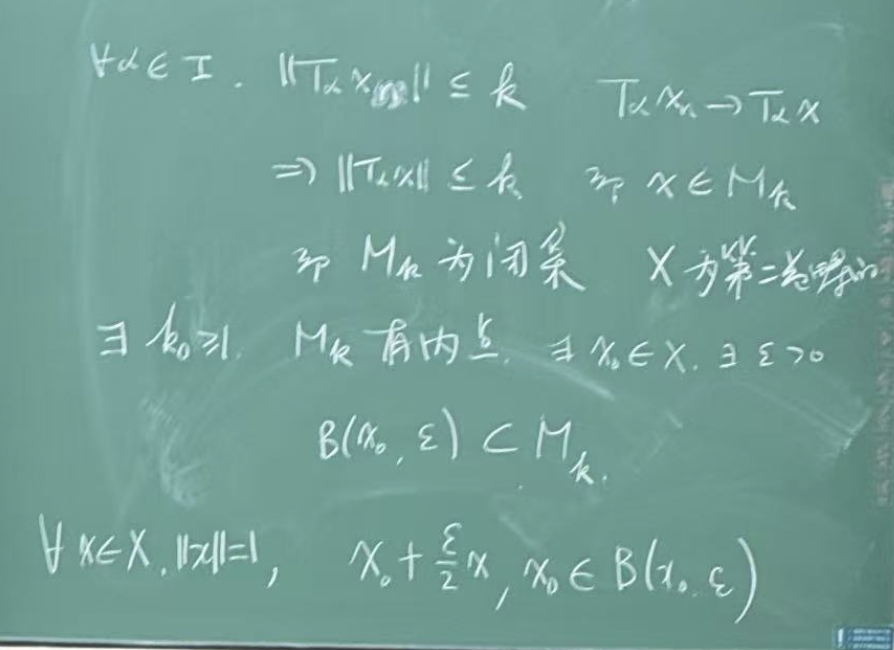 ∀α∈I. ‖Tα xn‖ ≤ k Tα xn → Tα x
⇒ ‖Tα x‖ ≤ k 即 x∈Mk
即 Mk 为闭集 X 为第二纲的
∃ k₀≥1. Mk 有内点. ∃ x₀∈X. ∃ ε>0
B(x₀, ε) ⊂ Mk.
∀ x∈X. ‖x‖=1, x₀ + ε/2 x, x₀ ∈ B(x₀. ε)